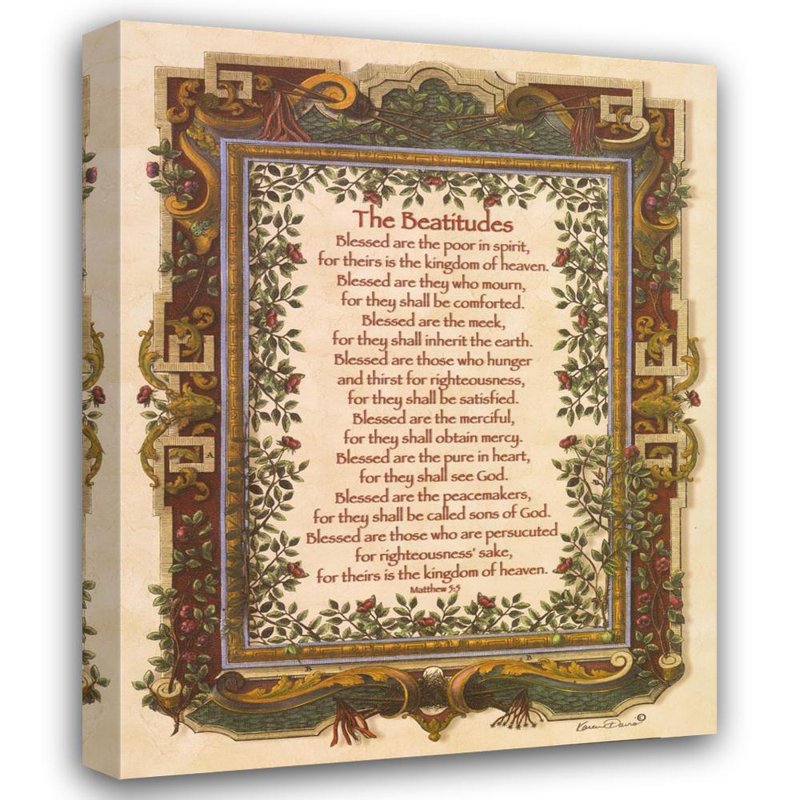 The Beatitudes
Blessed are the poor in spirit,
for theirs is the kingdom of heaven.
Blessed are they who mourn,
for they shall be comforted.
Blessed are the meek,
for they shall inherit the earth.
Blessed are those who hunger
and thirst for righteousness,
for they shall be satisfied.
Blessed are the merciful,
for they shall obtain mercy.
Blessed are the pure in heart,
for they shall see God.
Blessed are the peacemakers,
for they shall be called sons of God.
Blessed are those who are persucuted
for righteousness' sake,
for theirs is the kingdom of heaven.
Matthew 5:5
Karen Davis ©